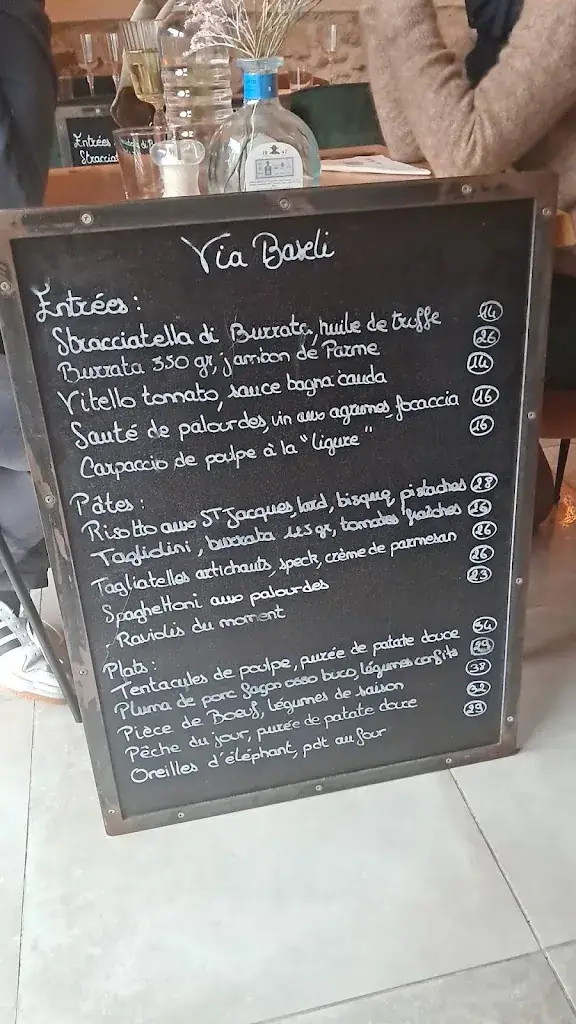 Entrées
Straccia
Via Baseli
Entrées :
Stracciatella di Burrata, huile de truffe 14
Burrata 350 gr, jambon de Parme 26
Vitello tomato, sauce bagna cauda 14
Sauté de palourdes, vin aux agrumes, focaccia 16
Carpaccio de poulpe à la "ligure" 16
Pâtes :
Risotto aux ST-Jacques, lard, bisque, pistaches 28
Tagliolini, burrata 125 gr, tomates fraîches 26
Tagliatelles artichauts, speck, crème de parmesan 26
Spaghettoni aux palourdes 26
Raviolis du moment 23
Plats :
Tentacules de poulpe, purée de patate douce 34
Pluma de porc façon osso buco, légumes confits 29
Pièce de Boeuf, légumes de saison 38
Pêche du jour, purée de patate douce 32
Oreilles d'éléphant, pdt au four 29